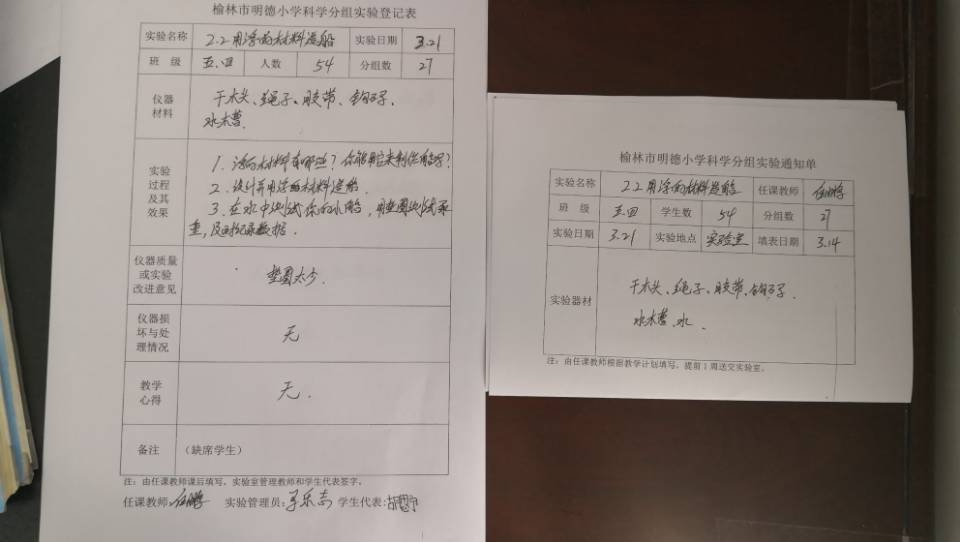 榆林市明德小学科学分组实验登记表
实验名称 2.2用浮的材料造船 实验日期 3.21
班 级 五.四 人数 54 分组数 27
仪器材料 干木头、绳子、胶带、钩码、
水槽.
实验过程及其效果 1. 浮的材料有哪些?你能用它来制作船吗?
2. 设计并用浮的材料造船.
3. 在水中测试你的小船, 用垫圈测试承
重, 及时记录数据.
仪器质量或实验改进意见 垫圈太少.
仪器损坏与处理情况 无
教学心得 无.
备注 (缺席学生)
注:由任课教师课后填写,实验室管理教师和学生代表签字。
任课教师: 实验管理员: 学生代表:
榆林市明德小学科学分组实验通知单
实验名称 2.2用浮的材料造船 任课教师
班 级 五.四 学生数 54 分组数 27
实验日期 3.21 实验地点 实验室 填表日期 3.14
实验器材 干木头、绳子、胶带、钩码、
水槽、水.
注:由任课教师根据教学计划填写,提前1周送交实验室。